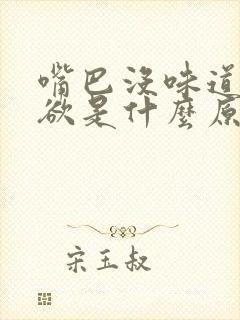 嘴巴没味道
欲是什麼原
宋玉叔